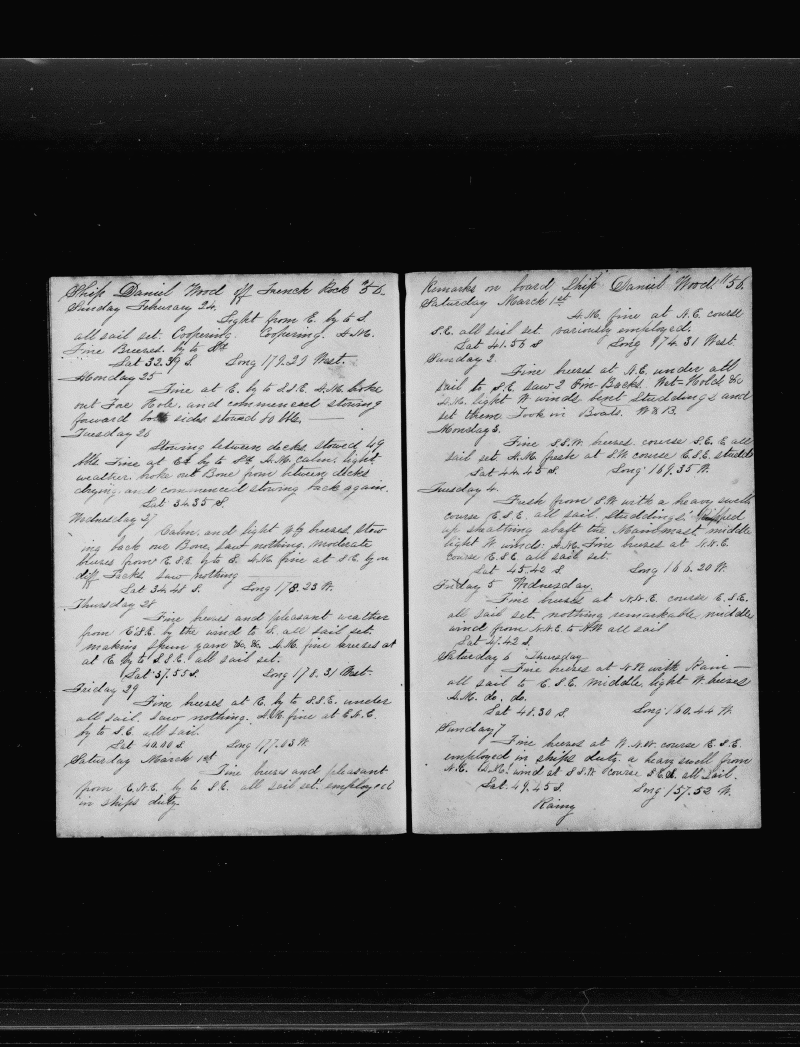 Ship Daniel Wood off French Rock 56
Sunday February 24.
Light from E. by to S.
all sail set. Coopering. Coopering. A.M.
Fine Breeses. by to
Lat 32.39 S. Long 179.29 West.
Monday 25
Fine at E. by to S.S.E. A.M. broke
out Fore Hole. and commenced stowing
forward both sides stowed 80 bbls.
Tuesday 26
Stowing between decks. stowed 49
bbls. Fine at by to A.M. calm. light
weather. broke out Bone from between decks
drying. and commenced stowing back again.
Lat 34.35 S.
Wednesday 27
Calm. and light breeses. stow
ing back our Bone. saw nothing. moderate
breeses from E.S.E. by to S. A.M. fine at S.E. by on
diff. Tacks. saw nothing
Lat 34.48 S. Long 178.23 W.
Thursday 28
Fine breeses and pleasant weather
from by the wind to S. all sail set.
making spun yarn &c. &c. A.M. fine breeses at
at E. by to S.S.E. all sail set.
Lat 37.55 S. Long 178.31 West.
Friday 29
Fine breeses at E. by to S.S.E. under
all sail. saw nothing. A.M. fine at E.N.E.
by to S.E. all sail.
Lat 40.00 S. Long 177.03 W.
Saturday March 1st
Fine breeses and pleasant
from E.N.E. by to S.E. all sail set. employed
in ships duty
Remarks on board Ship Daniel Wood. 56.
Saturday March 1st
A.M. fine at N.E. course
S.E. all sail set. variously employed.
Lat 41.56 S Long 174.31 West
Sunday 2.
Fine breeses at N.E. under all
sail to S.E. saw 2 Fin-Backs. Wet-Hold &c
A.M. light W winds bent Studdings and
set them. Took in Boats.
Monday 3.
Fine S.S.W. breeses. course S.E. E all
sail set. A.M. fresh at S.W. course E.S.E.
Lat 44.45 S. Long 169.35 W.
Tuesday 4.
Fresh from S.W. with a heavy swell
course E.S.E. all sail. studdings. Ripped
up sheathing abaft the Mainmast. middle
light W. winds. A.M. Fine breeses at N.N.E.
course E.S.E all sail set.
Lat 45.42 S. Long 166.20 W.
Friday 5 Wednesday
Fine breeses at N.N.E. course E.S.E.
all sail set. nothing remarkable middle
wind from N.N.E. to N.W all sail
Lat 47.42 S.
Saturday 6 Thursday
Fine breeses at N.W. with Rain —
all sail to E.S.E. middle light W. breeses
A.M. do. do.
Lat 48.30 S. Long 160.44 W.
Sunday 7
Fine breeses at W.N.W. course E.S.E.
employed in ships duty. a heavy swell from
N.E. A.M. wind at S.S.W course S.E. all sail.
Lat. 49.45 S Long 157.52 W.
Rainy